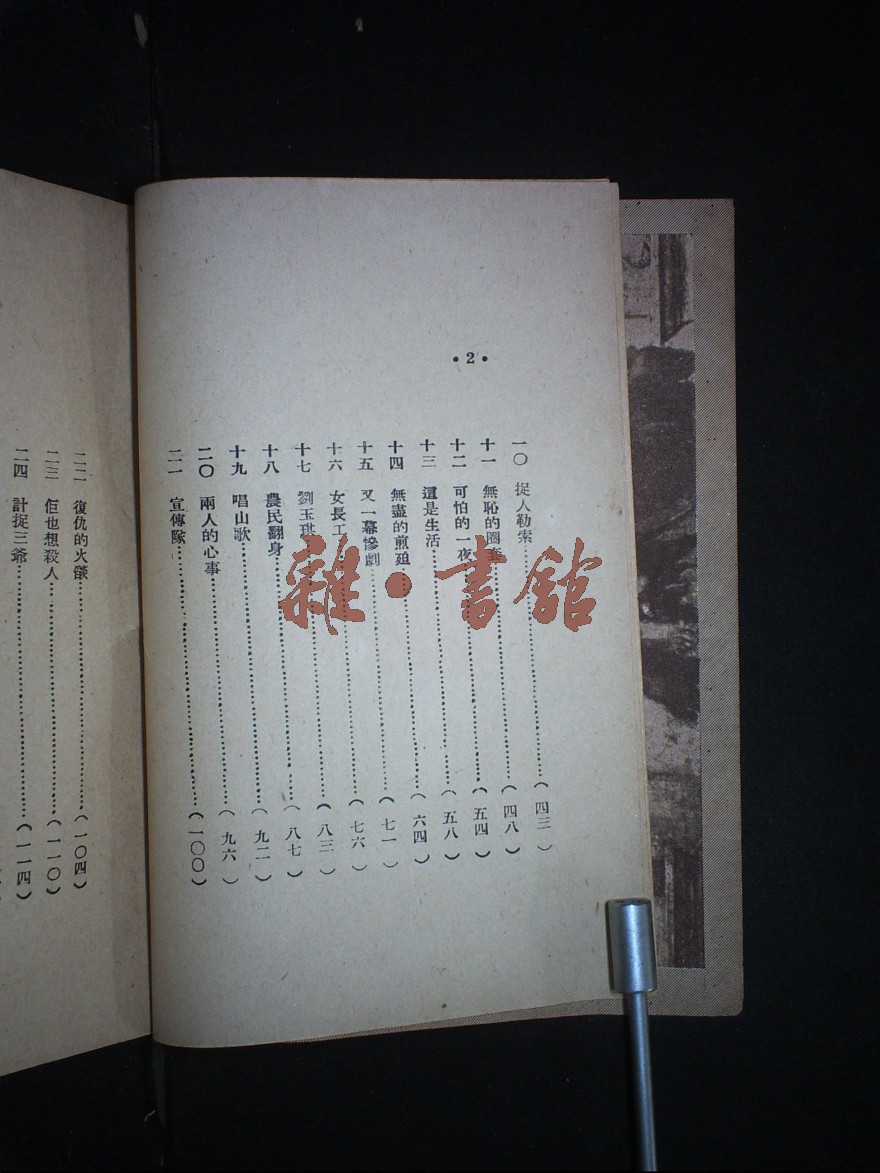 •2•
一〇 捉人勒索……(四三)
十一 無恥的圈套……(四八)
十二 可怕的一夜……(五四)
十三 這是生活……(五八)
十四 無盡的煎廹……(六四)
十五 又一幕慘劇……(七一)
十六 女長工……(七六)
十七 劉玉琪……(八三)
十八 農民翻身……(八七)
十九 唱山歌……(九二)
二〇 兩人的心事……(九六)
二一 宣傳隊……(一〇〇)
二二 復仇的火燄……(一〇四)
二三 佢也想殺人……(一一〇)
二四 計捉三爺……(一一四)
雜·書館